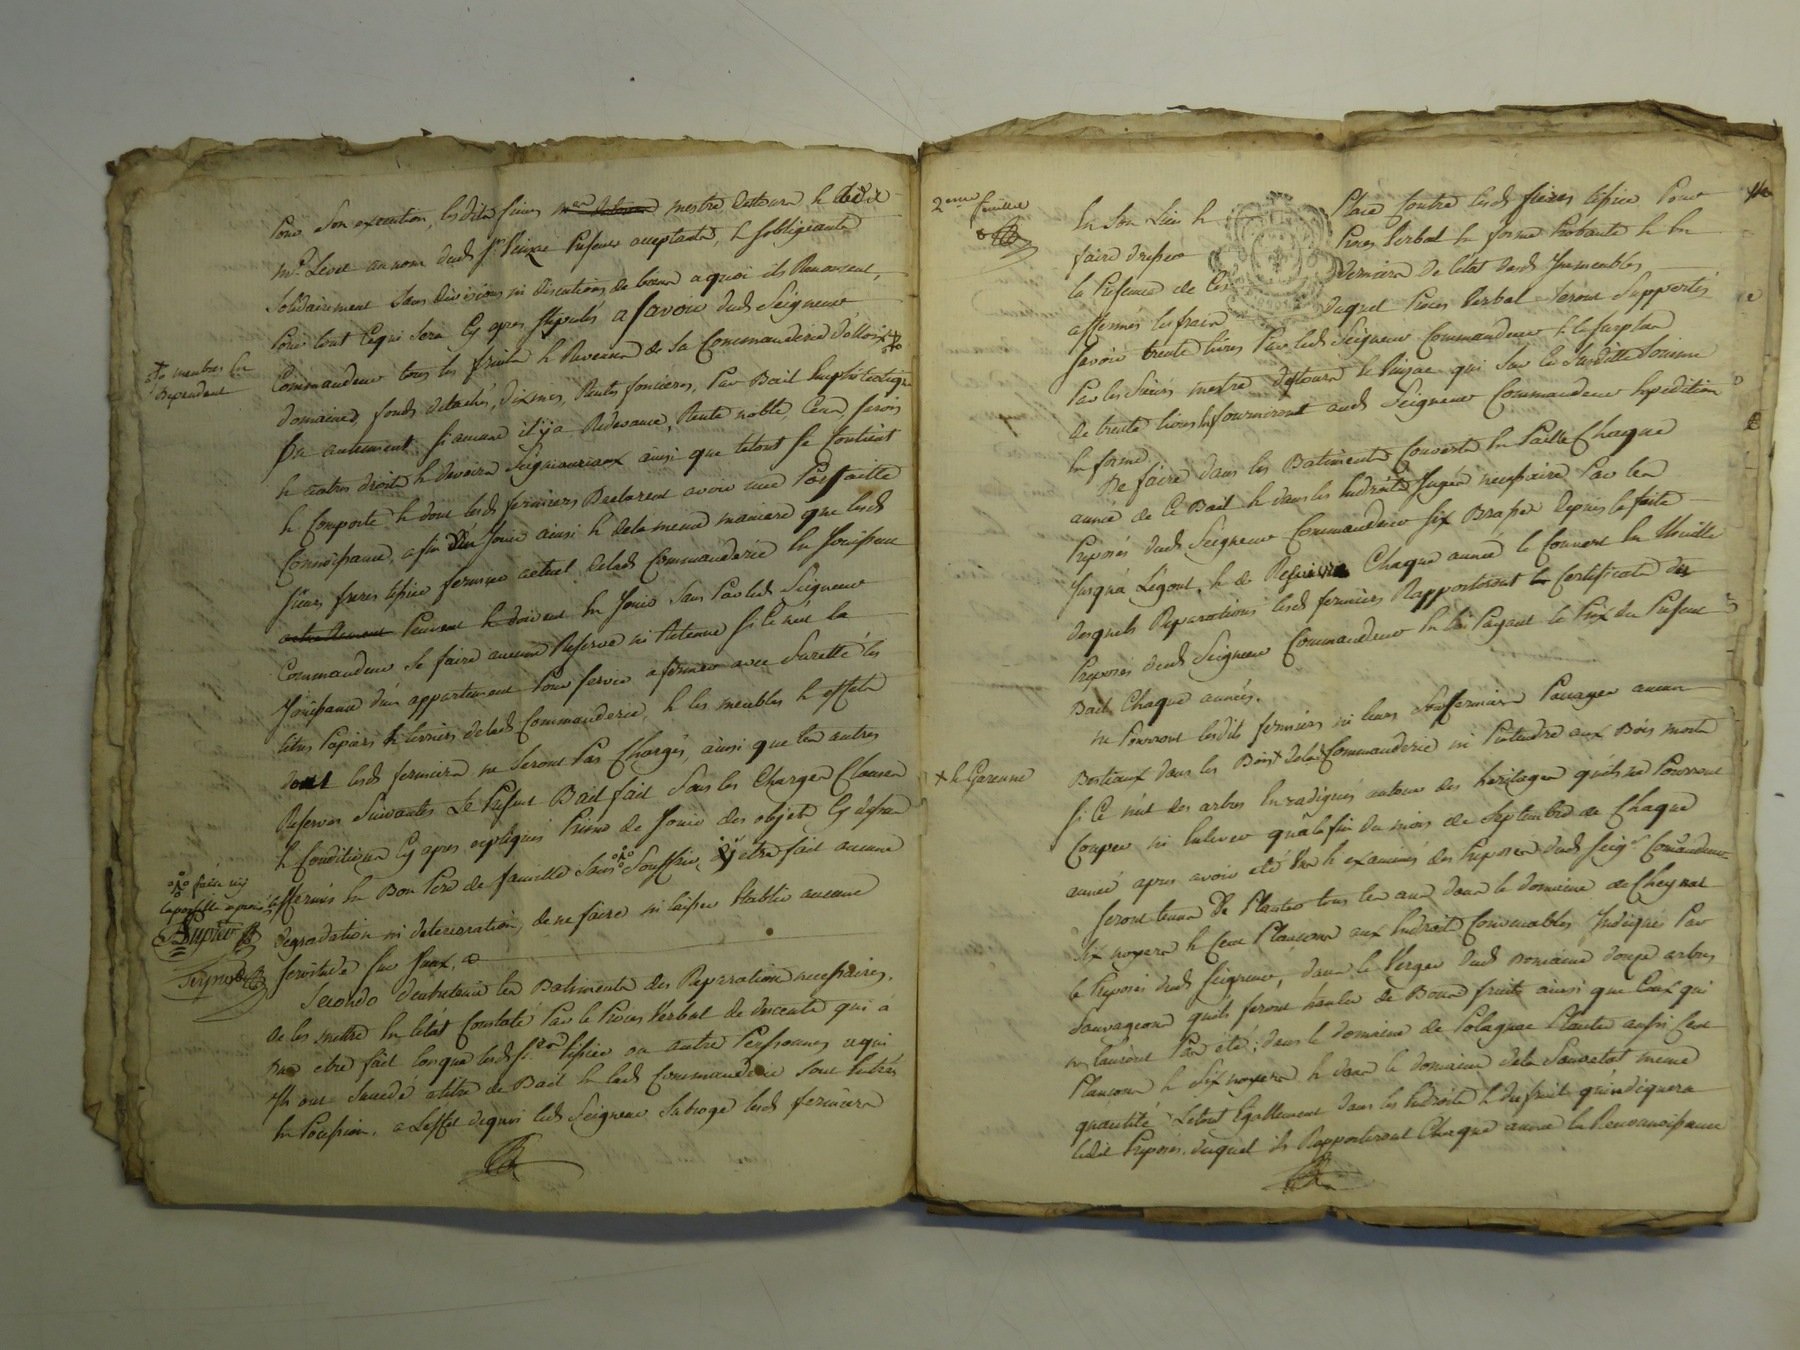 Pour Son execution, lesdits sieurs mestre Destours et ledit
Mr. Levet au nom dudt Sr. Present acceptants, et Sobligeants
Solidairement Sans division ni discution de biens a quoi ils Renoncent,
Pour tout cequi Sera Cy apres Stipulés a Savoir dudt Seigneur
Commandeur tous les fruits et Revenus de Sa Commanderie d'olloix
+ membres En Dependant
domaines, fonds detachés, dixmes, Rentes foncieres, Par Bail Emphiteotique
ou autrement Si aucune il y a Redevance, Rente noble, Cens,
et autres droits et devoirs Seigneuriaux ainsi que letout Se Contient
et Comporte et dont lesdt fermiers Declarent avoir une Parfaitte
Connoissance, afin d'En Jouir ainsi et dela meme maniere que lesdt
Sieurs freres fermiers actuel deladt Commanderie En Jouissent
Peuvent et doivent En Jouir Sans Par ledt Seigneur
Commandeur Se faire aucune Reserve ni Retenue Si Ce n'est la
Jouissance d'un appartement Pour Servir a fermer avec Sureté les
titres Papiers et terriers deladt Commanderie, et les meubles et effets
dont lesdt fermiers ne Seront Pas Chargés, ainsi que les autres
Reserves Suivantes Le Present Bail fait Sous les Charges Clauses
et Conditions Cy apres expliqués Primo de Jouir des objets Cy dessus
affermés En Bon Pere de famille Sans Souffrir, etre fait aucune
degradation ni deterioration, de ne faire ni laisser Etablir aucune
Servitude Sur Iceux,
Secondo d'entretenir les Batiments des Reparations necessaires,
de les mettre En l'état Constaté Par le Proces Verbal de descente qui a
etre fait lorsque lesdt ou autres Personnes a qui
Ils ont Succedé a titre de Bail En ladt Commanderie Sont Entrés
En Possession, a L'effet dequoi ledt Seigneur Subroge lesdt fermiers
2eme feuille
En Son Lieu et Place Contre lesdt freres Pour
faire dresser Proces Verbal En forme Probante et En
la Presence de Ces derniers de l'état desdt Immeubles
affermés les frais duquel Proces Verbal Seront Supportés
Savoir trente livres Par ledt Seigneur Commandeur et le Surplus
Par les Sieurs mestre Destours et qui Sur le Susditte Somme
de trente livres En fourniront audt Seigneur Commandeur Expedition
En forme.
De faire dans les Batiments Couverts En Paille Chaque
année de Ce Bail et dans les Endroits Jugés necessaires Par les
Preposés dudt Seigneur Commandeur Six Brasses depuis le faite
Jusqu'a L'egout, et de Chaque année le Couvert En thuille
desquels Reparations lesdt fermiers Rapporteront Certificats des
Preposés dudt Seigneur Commandeur En lui Payant le Prix du Present
Bail Chaque année.
ne Pourront lesdits fermiers ni leurs Sousfermiers Pacager aucun
x et Garenne
Bestiaux dans les Bois x deladt Commanderie ni Pretendre aux Bois morts
Si Ce n'est des arbres En radiqués autour des heritages qu'ils ne Pourront
Couper ni Enlever qu'a la fin du mois de Septembre de Chaque
année apres avoir eté Vu et examinés des Preposés dudt Seigr Commandeur
Seront tenus De Planter tous les ans dans le domaine de Cheynat
Six noyers et Cent Plancons aux Endroits Convenables Indiqués Par
le Preposés dudt Seigneur, dans le Verger dudt Domaine douze arbres
Sauvageons qu'ils feront Enter de Bons fruits ainsi que Ceux qui
n'lauront Pas eté; dans le domaine de Polagnac Planter aussi Cent
Plancons et Six noyers et dans le domaine dela Sauvetat meme
quantité Letout Egallement dans les Endroits et du fruit qu'indiquera
ledit Preposés, duquel ils Rapporteront Chaque année la Reconnoissance